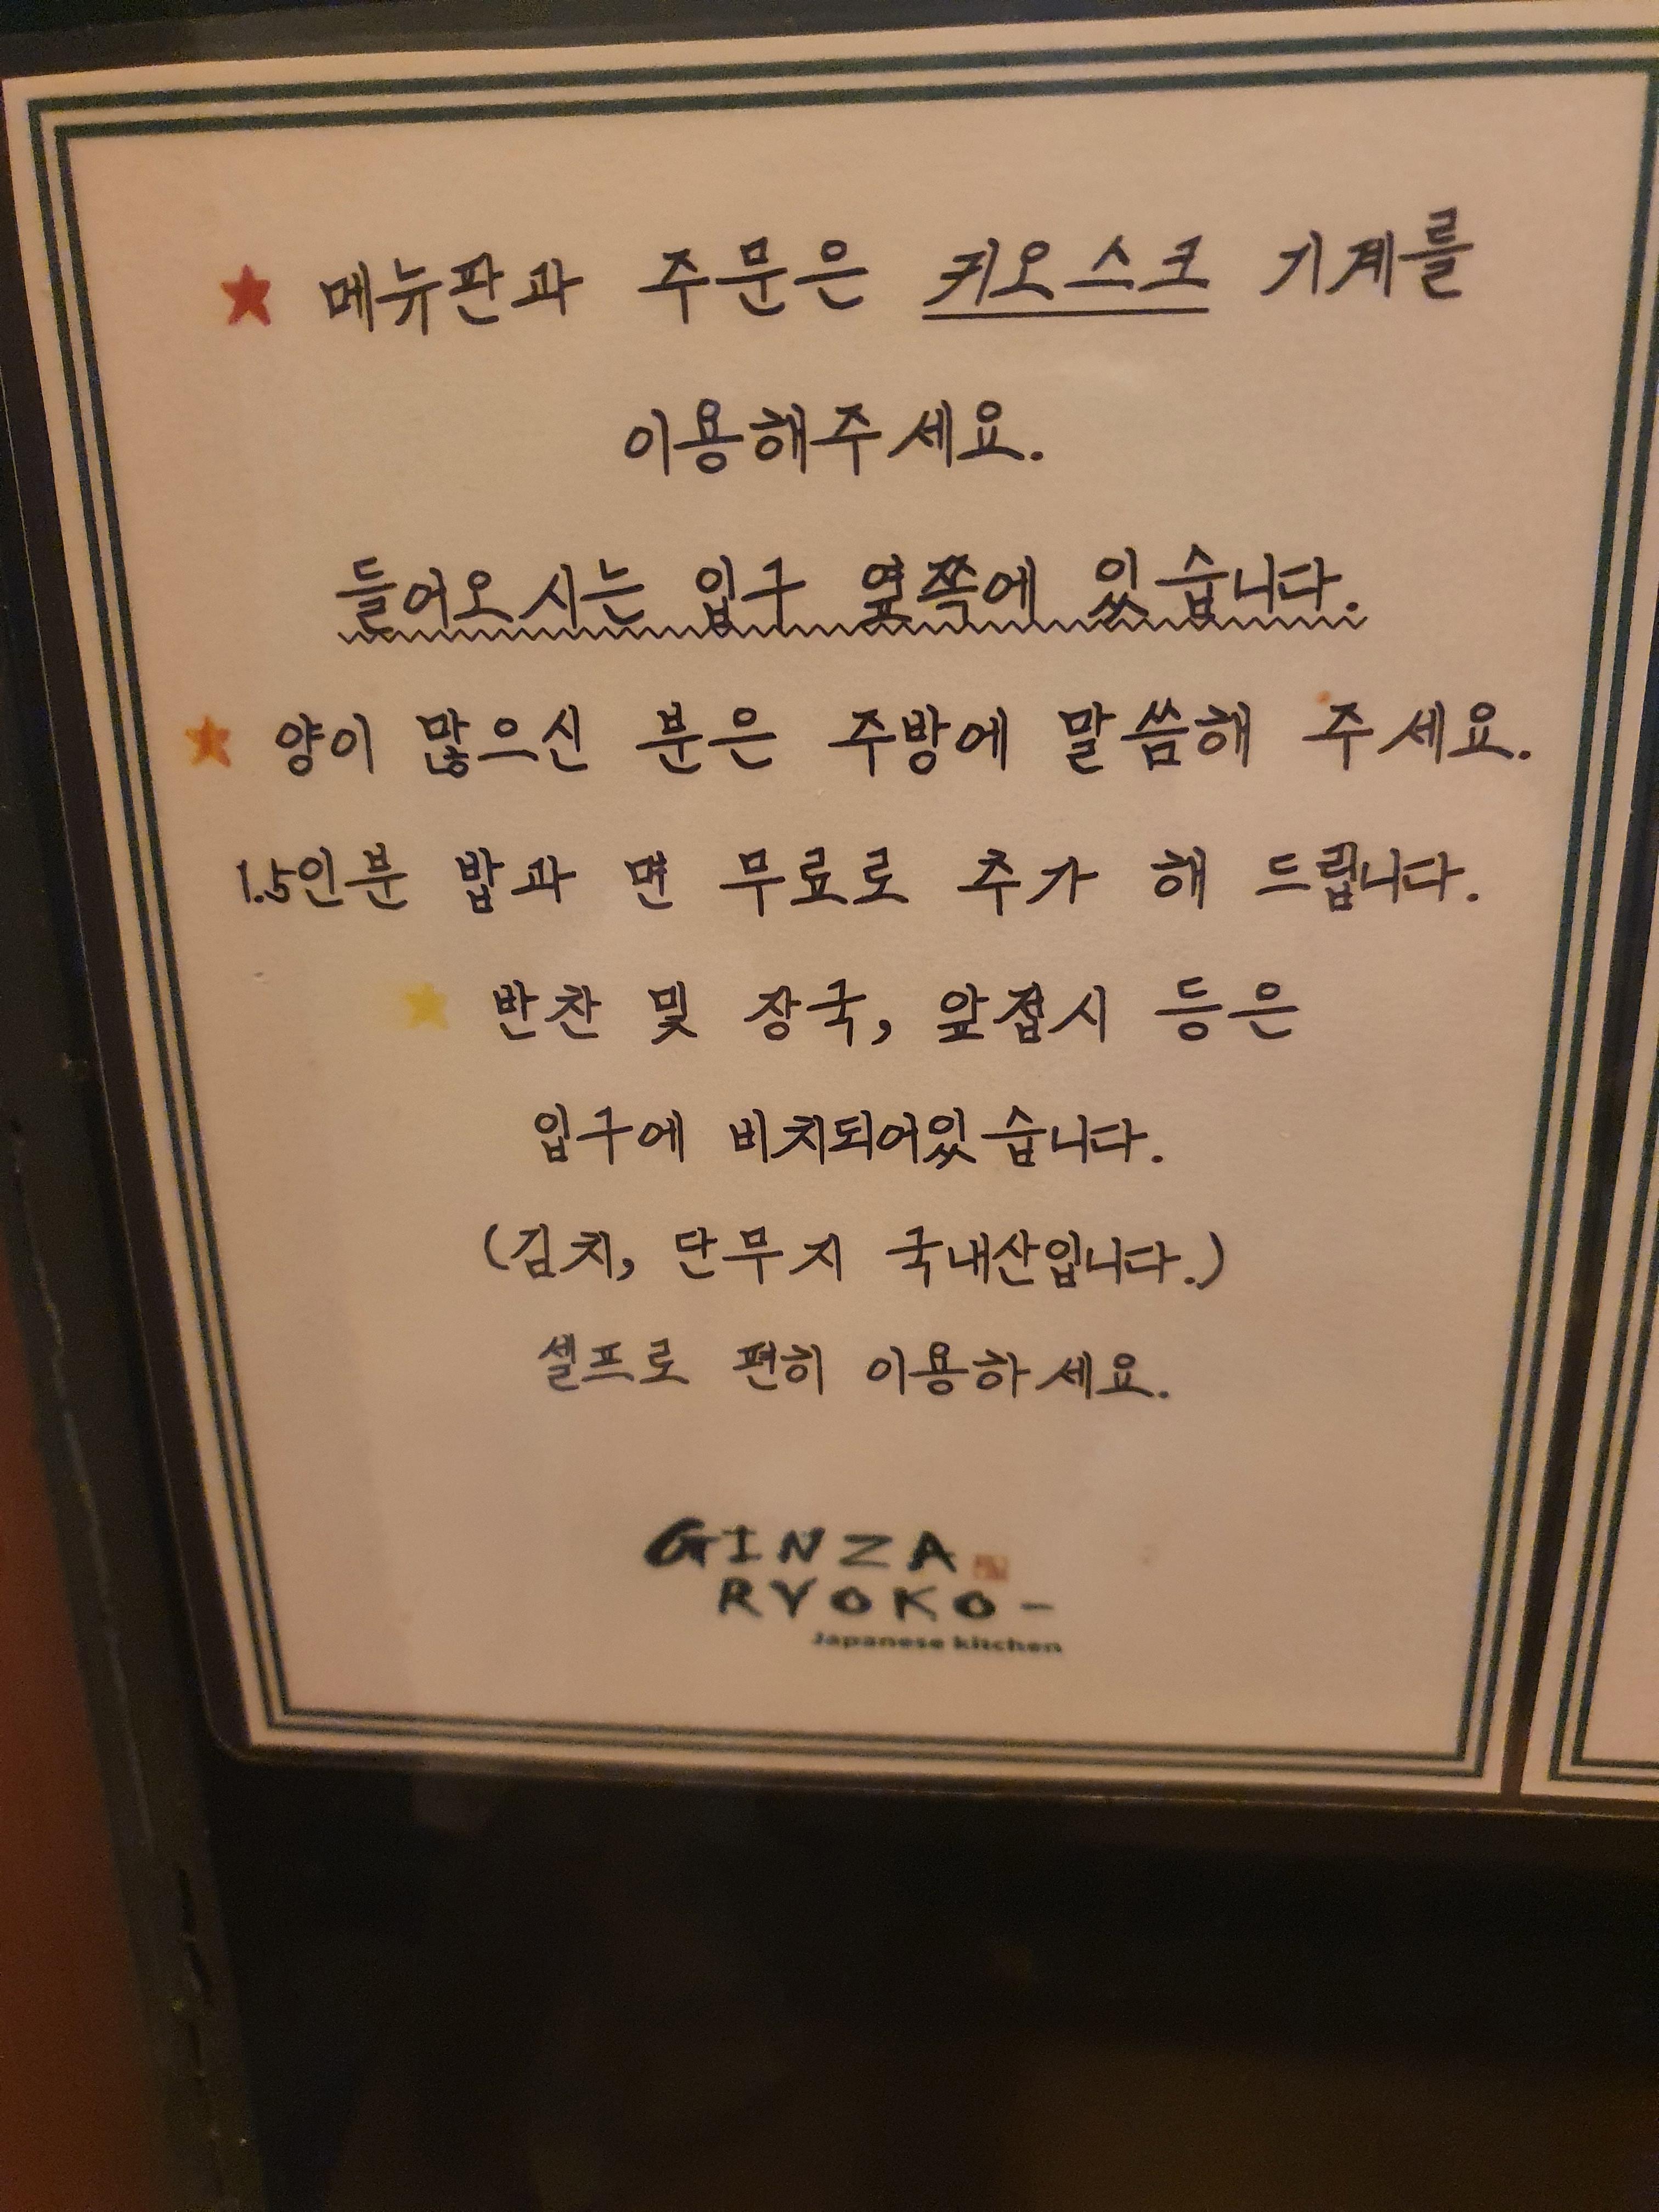 ★ 메뉴판과 주문은 키오스크 기계를
이용해주세요.
들어오시는 입구 옆쪽에 있습니다.
★ 양이 많으신 분은 주방에 말씀해 주세요.
1.5인분 밥과 면 무료로 추가 해 드립니다.
★ 반찬 및 장국, 앞접시 등은
입구에 비치되어있습니다.
(김치, 단무지 국내산입니다.)
셀프로 편히 이용하세요.
GINZA
RYOKO-
Japanese kitchen